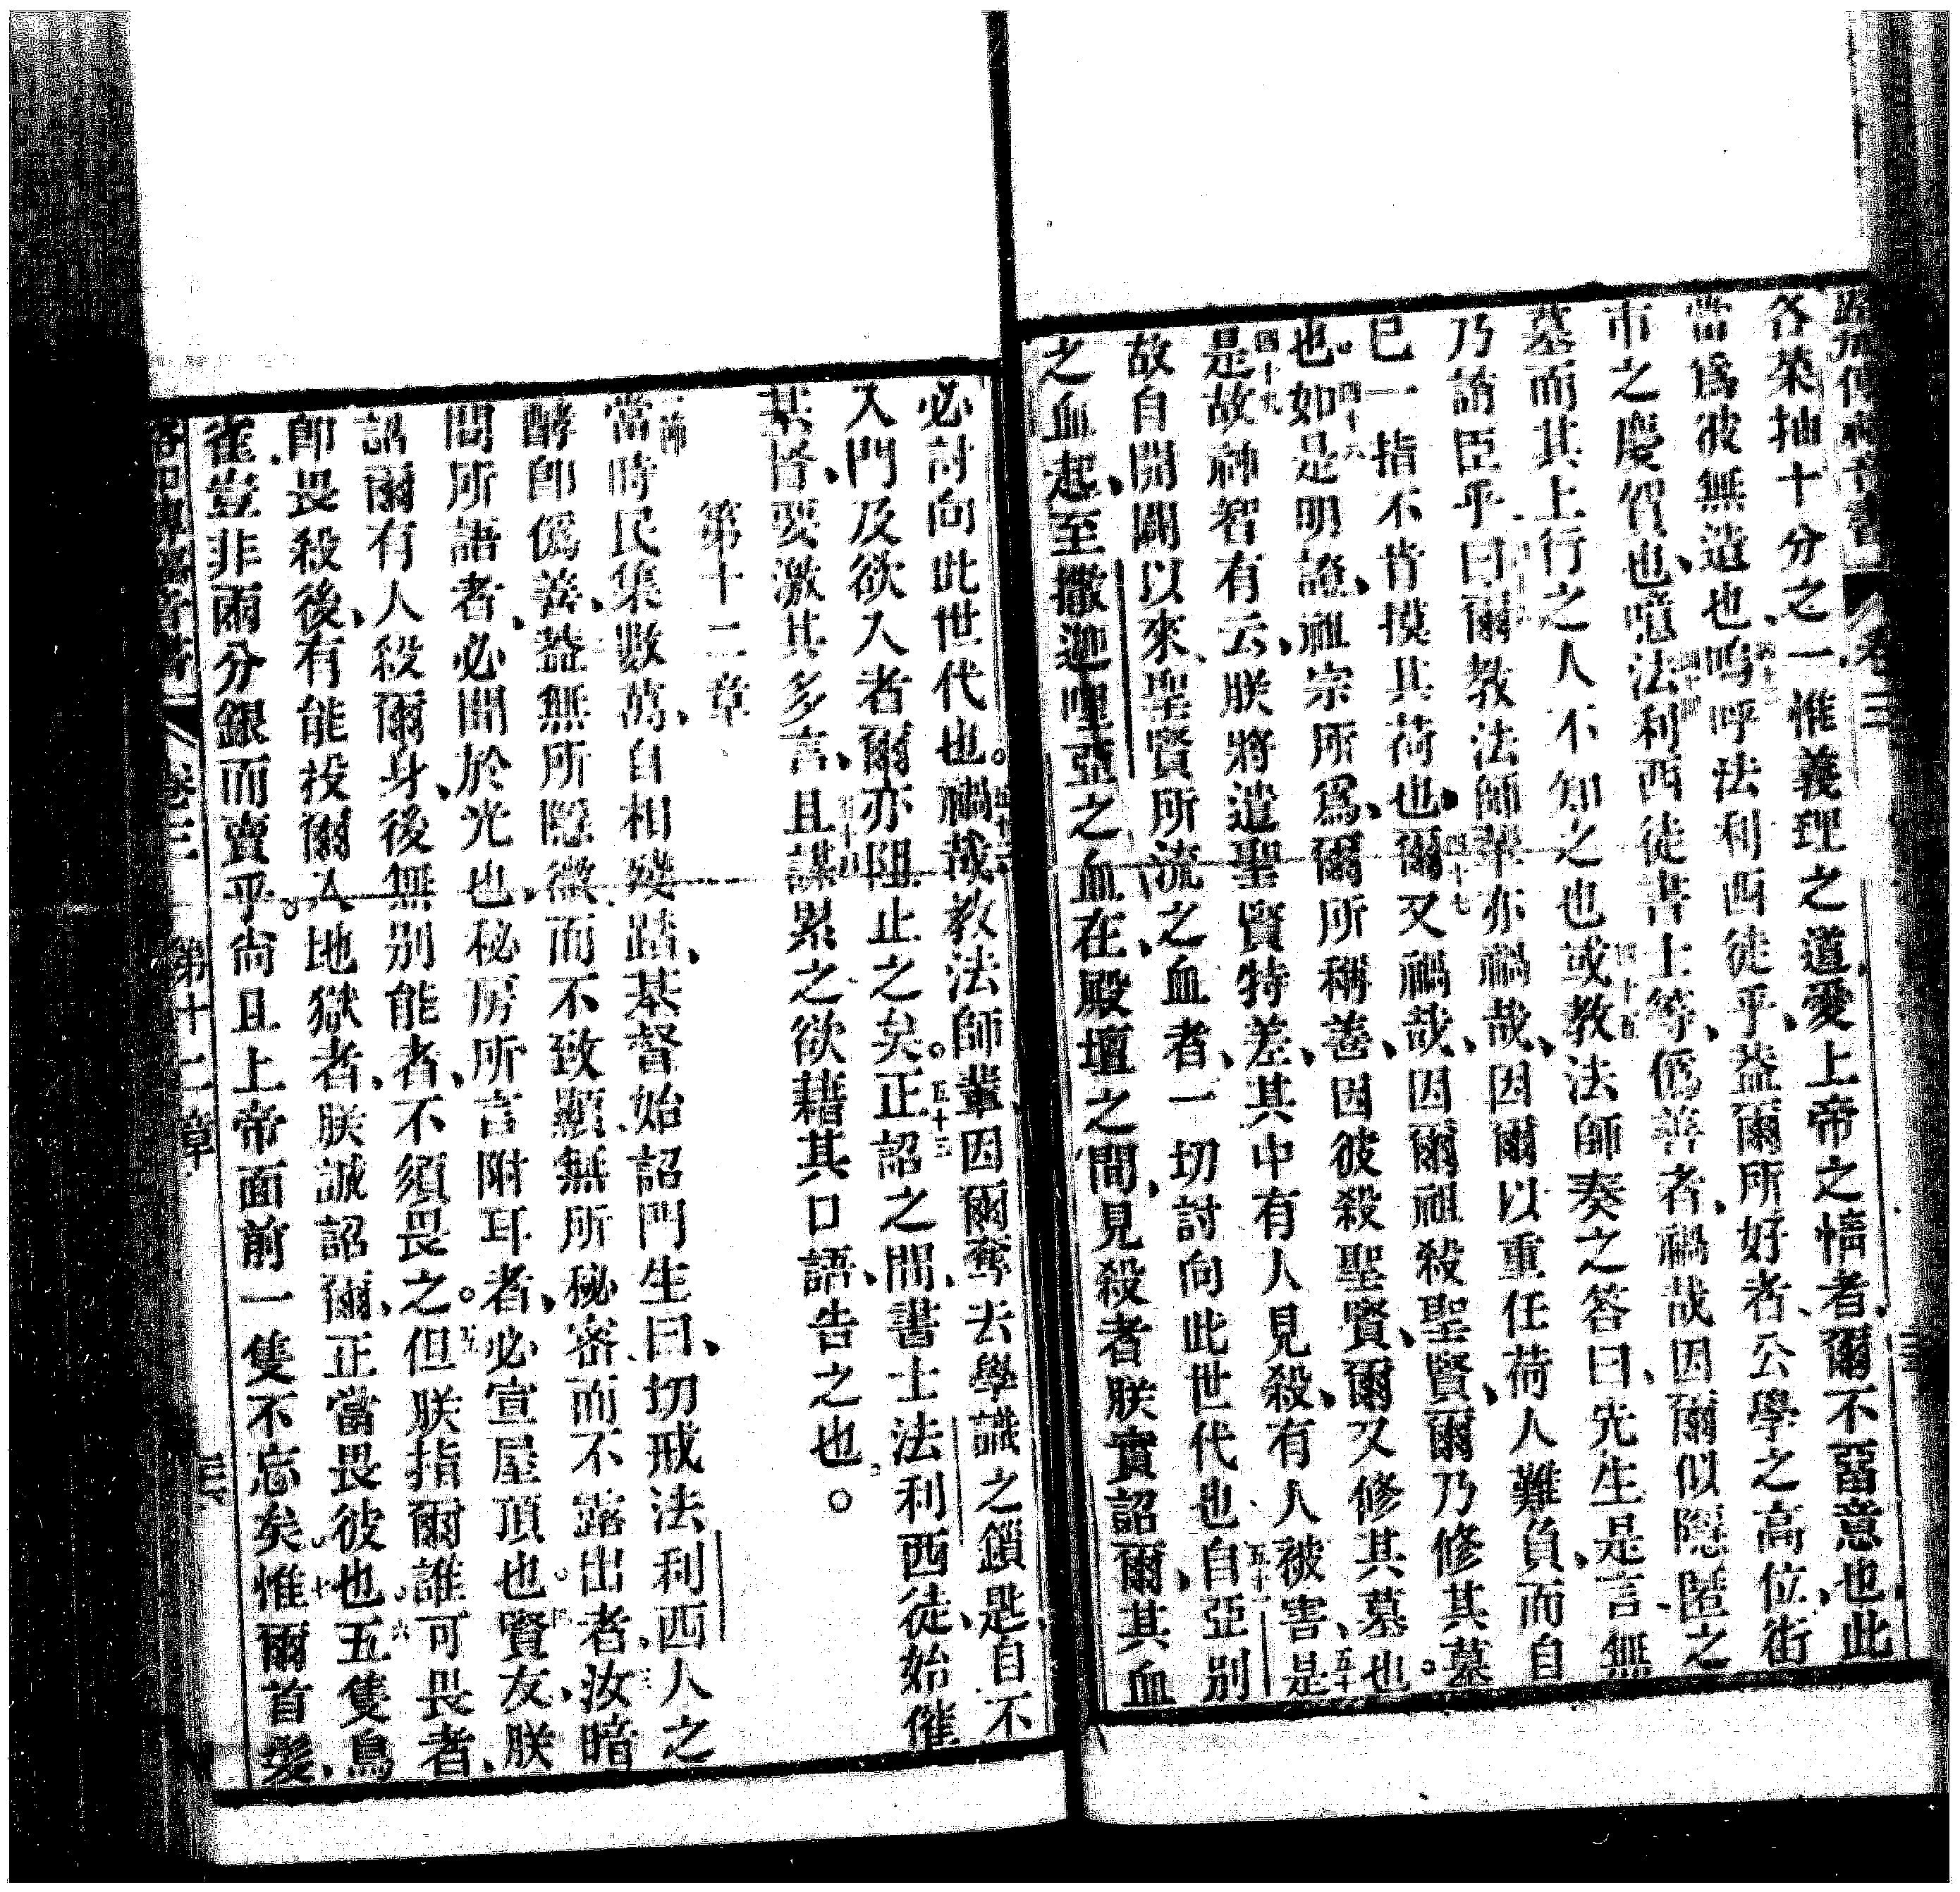 路加傳福音書 卷三
各菜抽十分之一、惟義理之道、愛上帝之情者、爾不畱意也、此
當爲彼無遺也、嗚呼法利西徒乎、葢爾所好者、公學之高位、街
市之慶賀也、噫法利西徒書士等、僞善者、禍哉因爾似隱匿之
墓而其上行之人不知之也或教法師奏之答曰、先生是言無
乃諳臣乎、曰爾教法師輩亦禍哉、因爾以重任荷人難負、而自
已一指不肯摸其荷也、爾又禍哉、因爾祖殺聖賢、爾乃修其墓
也。如是明證、祖宗所爲、爾所稱善、因彼殺聖賢、爾又修其墓也。
是故神智有云、朕將遣聖賢特差、其中有人見殺、有人被害、是
故自開闢以來、聖賢所流之血者、一切討向此世代也自亞別
之血起、至撒迦哩亞之血在、殿壇之間、見殺者朕實詔爾、其血
必討向此世代也。禍哉教法師輩因爾奪去學識之鎖匙、自不
入門及欲入者、爾亦阻止之矣。正詔之間、書士法利西徒、始催
基督、要激其多言、且謀累之欲藉其口語、告之也。
第十二章
一節
當時民集數萬、自相殘踏、基督始詔門生曰、切戒法利西人之
酵卽僞善、葢無所隱微而不致顯無所秘密而不露出者、汝暗
間所語者、必聞於光也、秘房所言附耳者、必宣屋頂也。賢友、朕
詔爾有人殺爾身、後無別能者、不須畏之。但朕指爾誰可畏者、
卽畏殺後、有能投爾入地獄者、朕誠詔爾、正當畏彼也。五隻鳥
雀豈非兩分銀而賣乎。尙且上帝面前一隻不忘矣。惟爾首髮、
卷三 第十二章